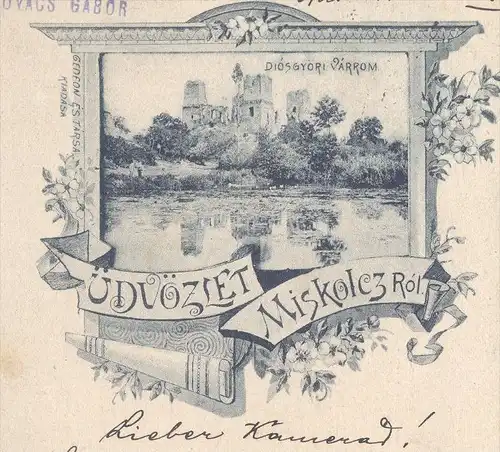 KOVÁCS GÁBOR
DIÓSGYŐRI VÁRROM
GEDEON ÉS TÁRSA
KIADÁSA
ÜDVÖZLET
MISKOLCZRÓL
Lieber Kamerad!